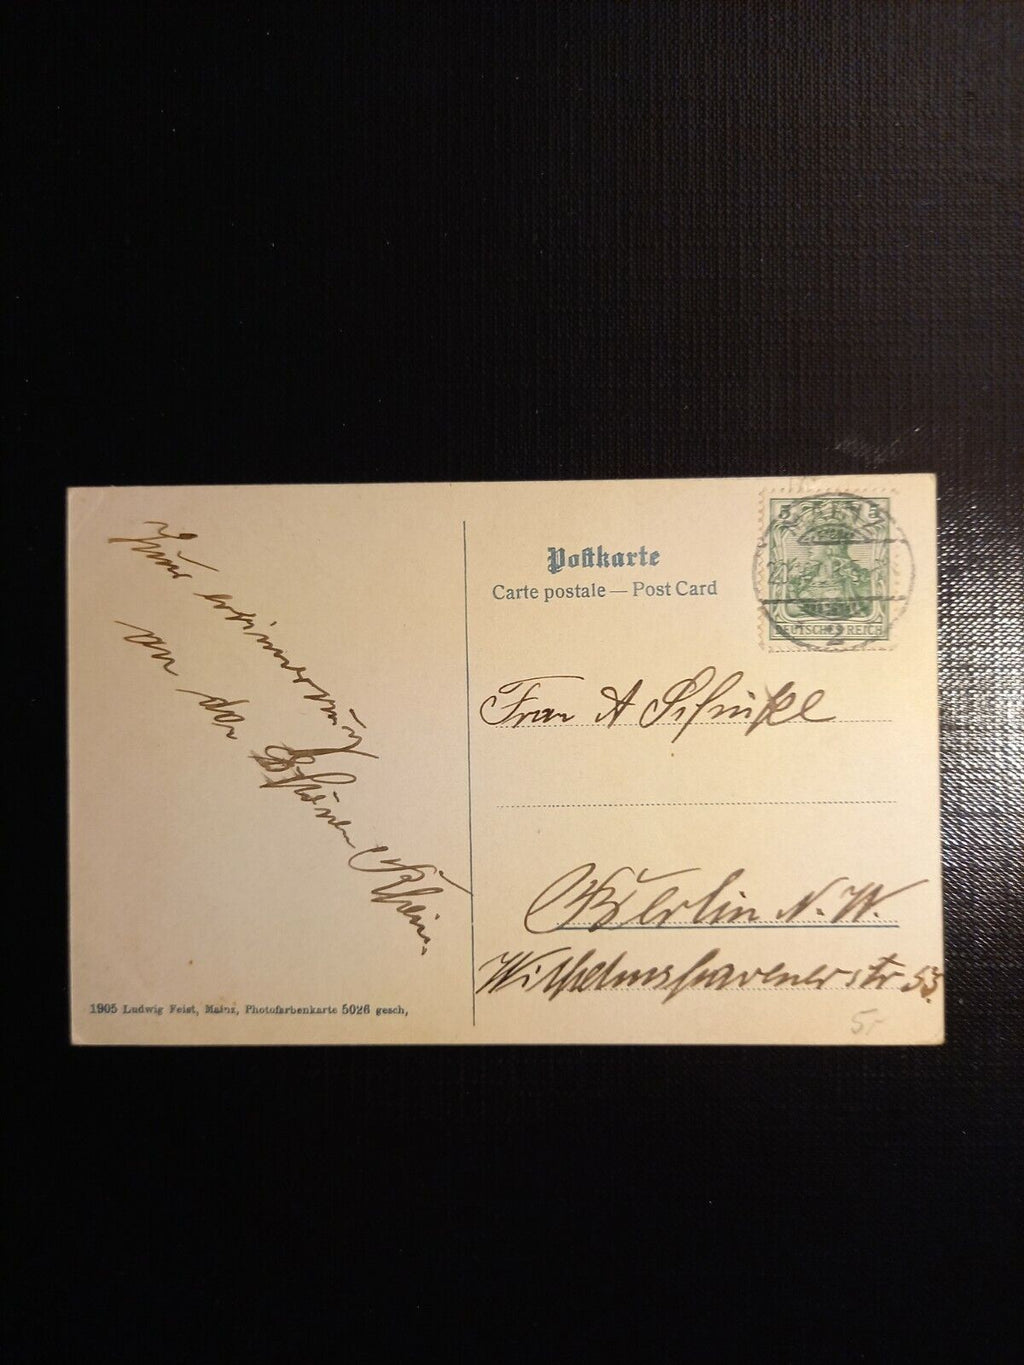 Zur erinnerung
an den Schönen Rhein.
Postkarte
Carte postale — Post Card
5 5
DEUTSCHES REICH
2
Frau A
Berlin N. W.
Wilhelmshavener str 53.
1905 Ludwig Feist, Mainz, Photofarbenkarte 5026 gesch,
5.-